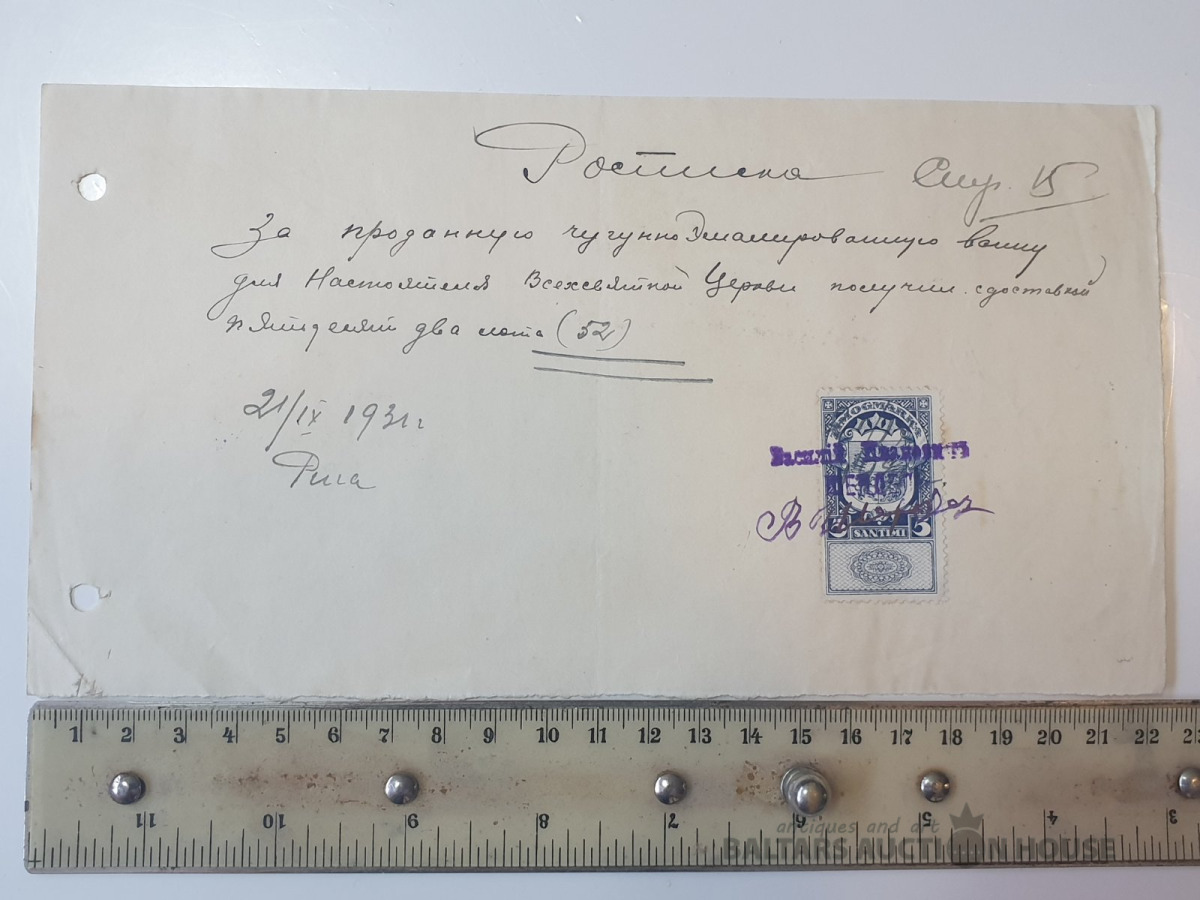 Росписка
Стр. 15
За проданную чугунно Эмалированную ванну
для Настоятеля Всехсвятной Церкви получил с доставкой
пятьдесят два лата (52)
21/IX 1931 г
Рига
ZĪMOGMARKA
Василій Ивановичъ
5 SANTIMI 5
1 2 3 4 5 6 7 8 9 10 11 12 13 14 15 16 17 18 19 20 21 22 23
11 10 9 8 7 6 5 4 3
antiques and art
BALTARS AUCTION HOUSE